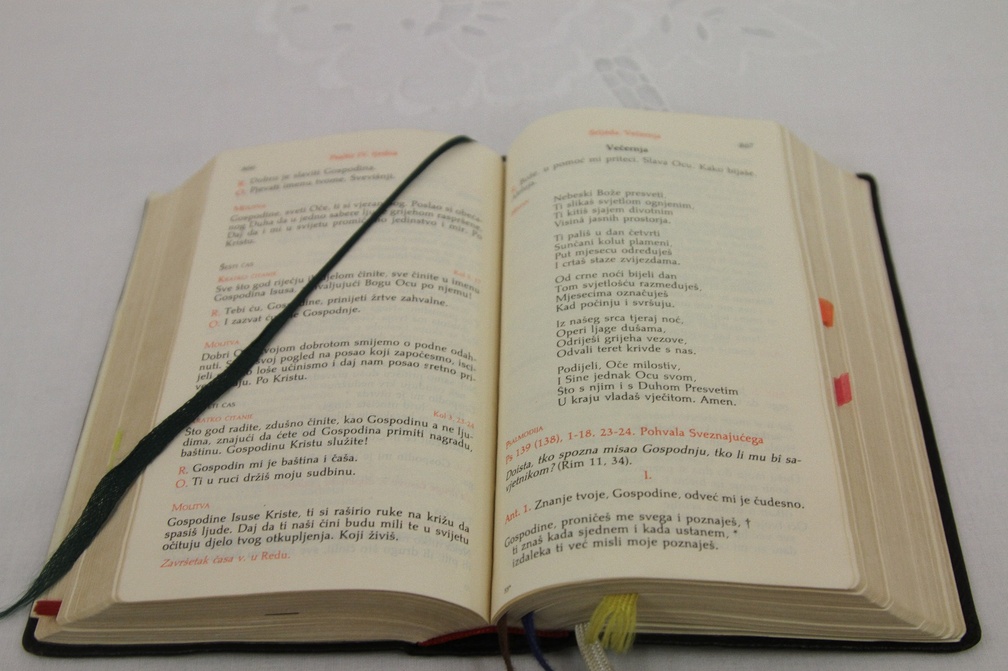 Psaltir IV. tjedna
R. Dobro je slaviti Gospodina.
O. Pjevati imenu tvome, Svevišnji.
MOLITVA
Gospodine, sveti Oče, ti si vjeran Poslao si
nog Duha da u jedno sabere grijehom raspršene.
Daj da i mi u svijetu jedinstvo i mir. Po
Kristu.
ŠESTI ČAS
KRATKO ČITANJE Kol 3, 17
Sve što god riječju ili djelom činite, sve činite u imenu
Gospodina Isusa, zahvaljujući Bogu Ocu po njemu!
R. Tebi ću, Gospodine, prinijeti žrtve zahvalne.
O. I zazvat ću ime Gospodnje.
MOLITVA
Dobri dobrotom smijemo o podne odah-
nuti. svoj pogled na posao koji započesmo, isci-
jeli loše učinismo i daj nam posao sretno pri-
Po Kristu.
ČAS
KRATKO ČITANJE Kol 3, 23-24
Što god radite, zdušno činite, kao Gospodinu a ne lju-
dima, znajući da ćete od Gospodina primiti nagradu,
baštinu. Gospodinu Kristu služite!
R. Gospodin mi je baština i čaša.
O. Ti u ruci držiš moju sudbinu.
MOLITVA
Gospodine Isuse Kriste, ti si raširio ruke na križu da
spasiš ljude. Daj da ti naši čini budu mili te u svijetu
očituju djelo tvog otkupljenja. Koji živiš.
Završetak časa v. iz Redu.
Srijeda, Večernja 667
Večernja
Bože, u pomoć mi priteci. Slava Ocu. Kako bijaše.
Nebeski Bože presveti
Ti slikaš svjetlom ognjenim,
Ti kitiš sjajem divotnim
Visina jasnih prostorja.
Ti pališ u dan četvrti
Sunčani kolut plameni,
Put mjesecu određuješ
I crtaš staze zvijezdama.
Od crne noći bijeli dan
Tom svjetlošću razmeđuješ,
Mjesecima označuješ
Kad počinju i svršuju.
Iz našeg srca tjeraj noć,
Operi ljage dušama,
Odriješi grijeha vezove,
Odvali teret krivde s nas.
Podijeli, Oče milostiv,
I Sine jednak Ocu svom,
Što s njim i s Duhom Presvetim
U kraju vladaš vječitom. Amen.
PSALMODIJA
Ps 139 (138), 1-18. 23-24. Pohvala Sveznajućega
Doista, tko spozna misao Gospodnju, tko li mu bi sa-
vjetnikom? (Rim 11, 34).
I.
Ant. 1. Znanje tvoje, Gospodine, odveć mi je čudesno.
Gospodine, proničeš me svega i poznaješ, †
ti znaš kada sjednem i kada ustanem, *
izdaleka ti već misli moje poznaješ.